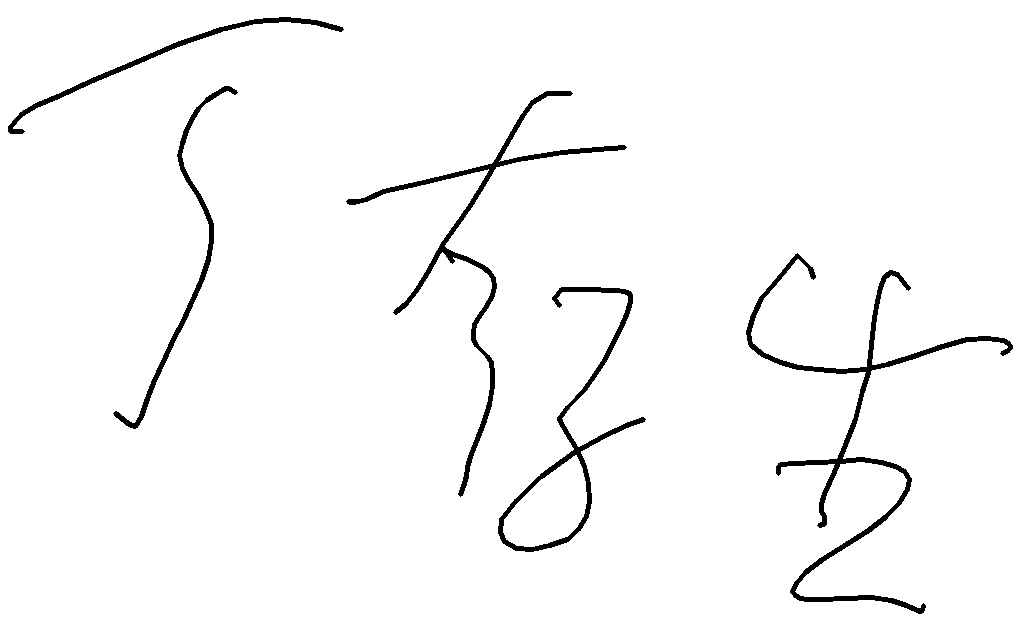 丁存生